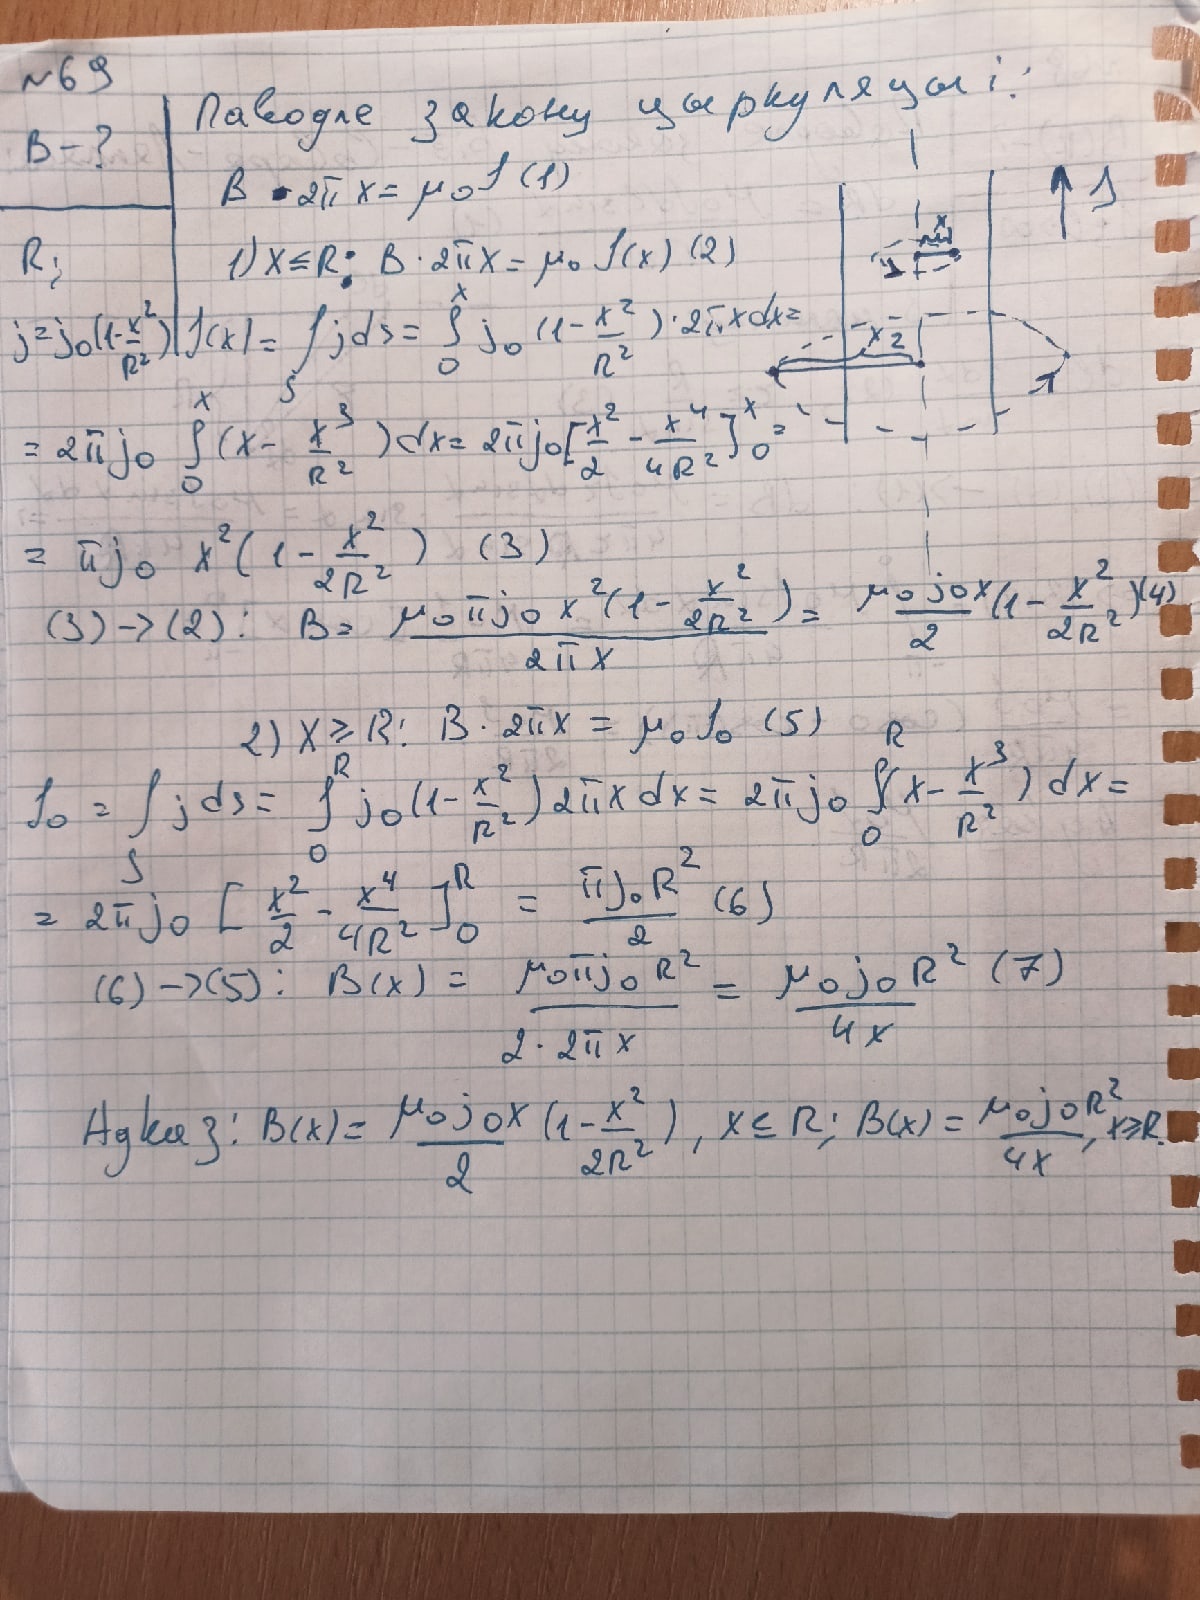 №69
B-?
Паводле закону цыркуляцыі:
B · 2πx = μ₀I (1)
R;
1) x ≤ R: B · 2πx = μ₀I(x) (2)
j=j₀(1-x²/R²)
I(x) = ∫_S jds = ∫₀ˣ j₀ (1-x²/R²)·2πxdx=
= 2πj₀ ∫₀ˣ (x - x³/R²)dx = 2πj₀[x²/2 - x⁴/4R²]₀ˣ =
= πj₀ x²(1 - x²/2R²) (3)
(3)->(2): B = μ₀πj₀x²(1 - x²/2R²)/2πx = μ₀j₀x/2 (1 - x²/2R²) (4)
2) x ≥ R: B · 2πx = μ₀I₀ (5)
I₀ = ∫_S jds = ∫₀ᴿ j₀(1-x²/R²)2πxdx = 2πj₀ ∫₀ᴿ(x - x³/R²)dx =
= 2πj₀ [x²/2 - x⁴/4R²]₀ᴿ = πj₀R²/2 (6)
(6)->(5): B(x) = μ₀πj₀R²/2·2πx = μ₀j₀R²/4x (7)
Адказ: B(x) = μ₀j₀x/2 (1-x²/2R²), x ≤ R; B(x) = μ₀j₀R²/4x, x≥R.
I
x
x₂